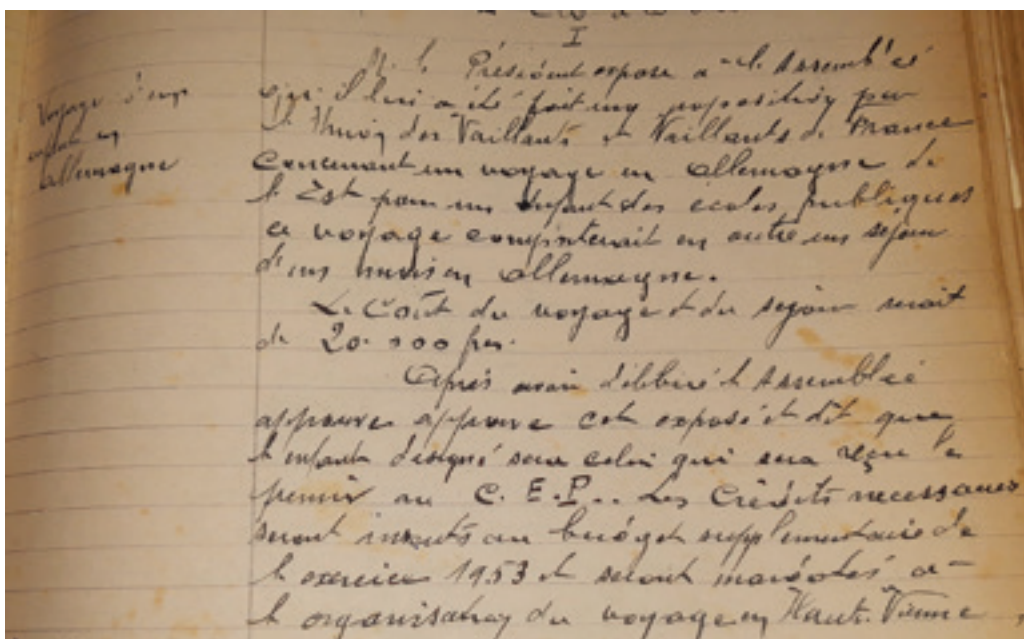 I
M. le Président expose à l'Assemblée
que il lui a été fait une proposition par
l'Union des Vaillants et Vaillantes de France
Voyage d'un
enfant en
allemagne
Concernant un voyage en allemagne de
l'Est pour un enfant des écoles publiques
ce voyage consisterait en outre un séjour
d'un mois en allemagne.
Le Coût du voyage et du séjour serait
de 20.000 frs.
Après avoir délibéré l'Assemblée
approuve approuve cet exposé et dit que
l'enfant désigné sera celui qui sera reçu le
premier au C.E.P.. Les Crédits necessaires
seront inscrits au budget supplementaire de
l'exercice 1953 et seront mandatés à
l'organisation du voyage en Haute-Vienne